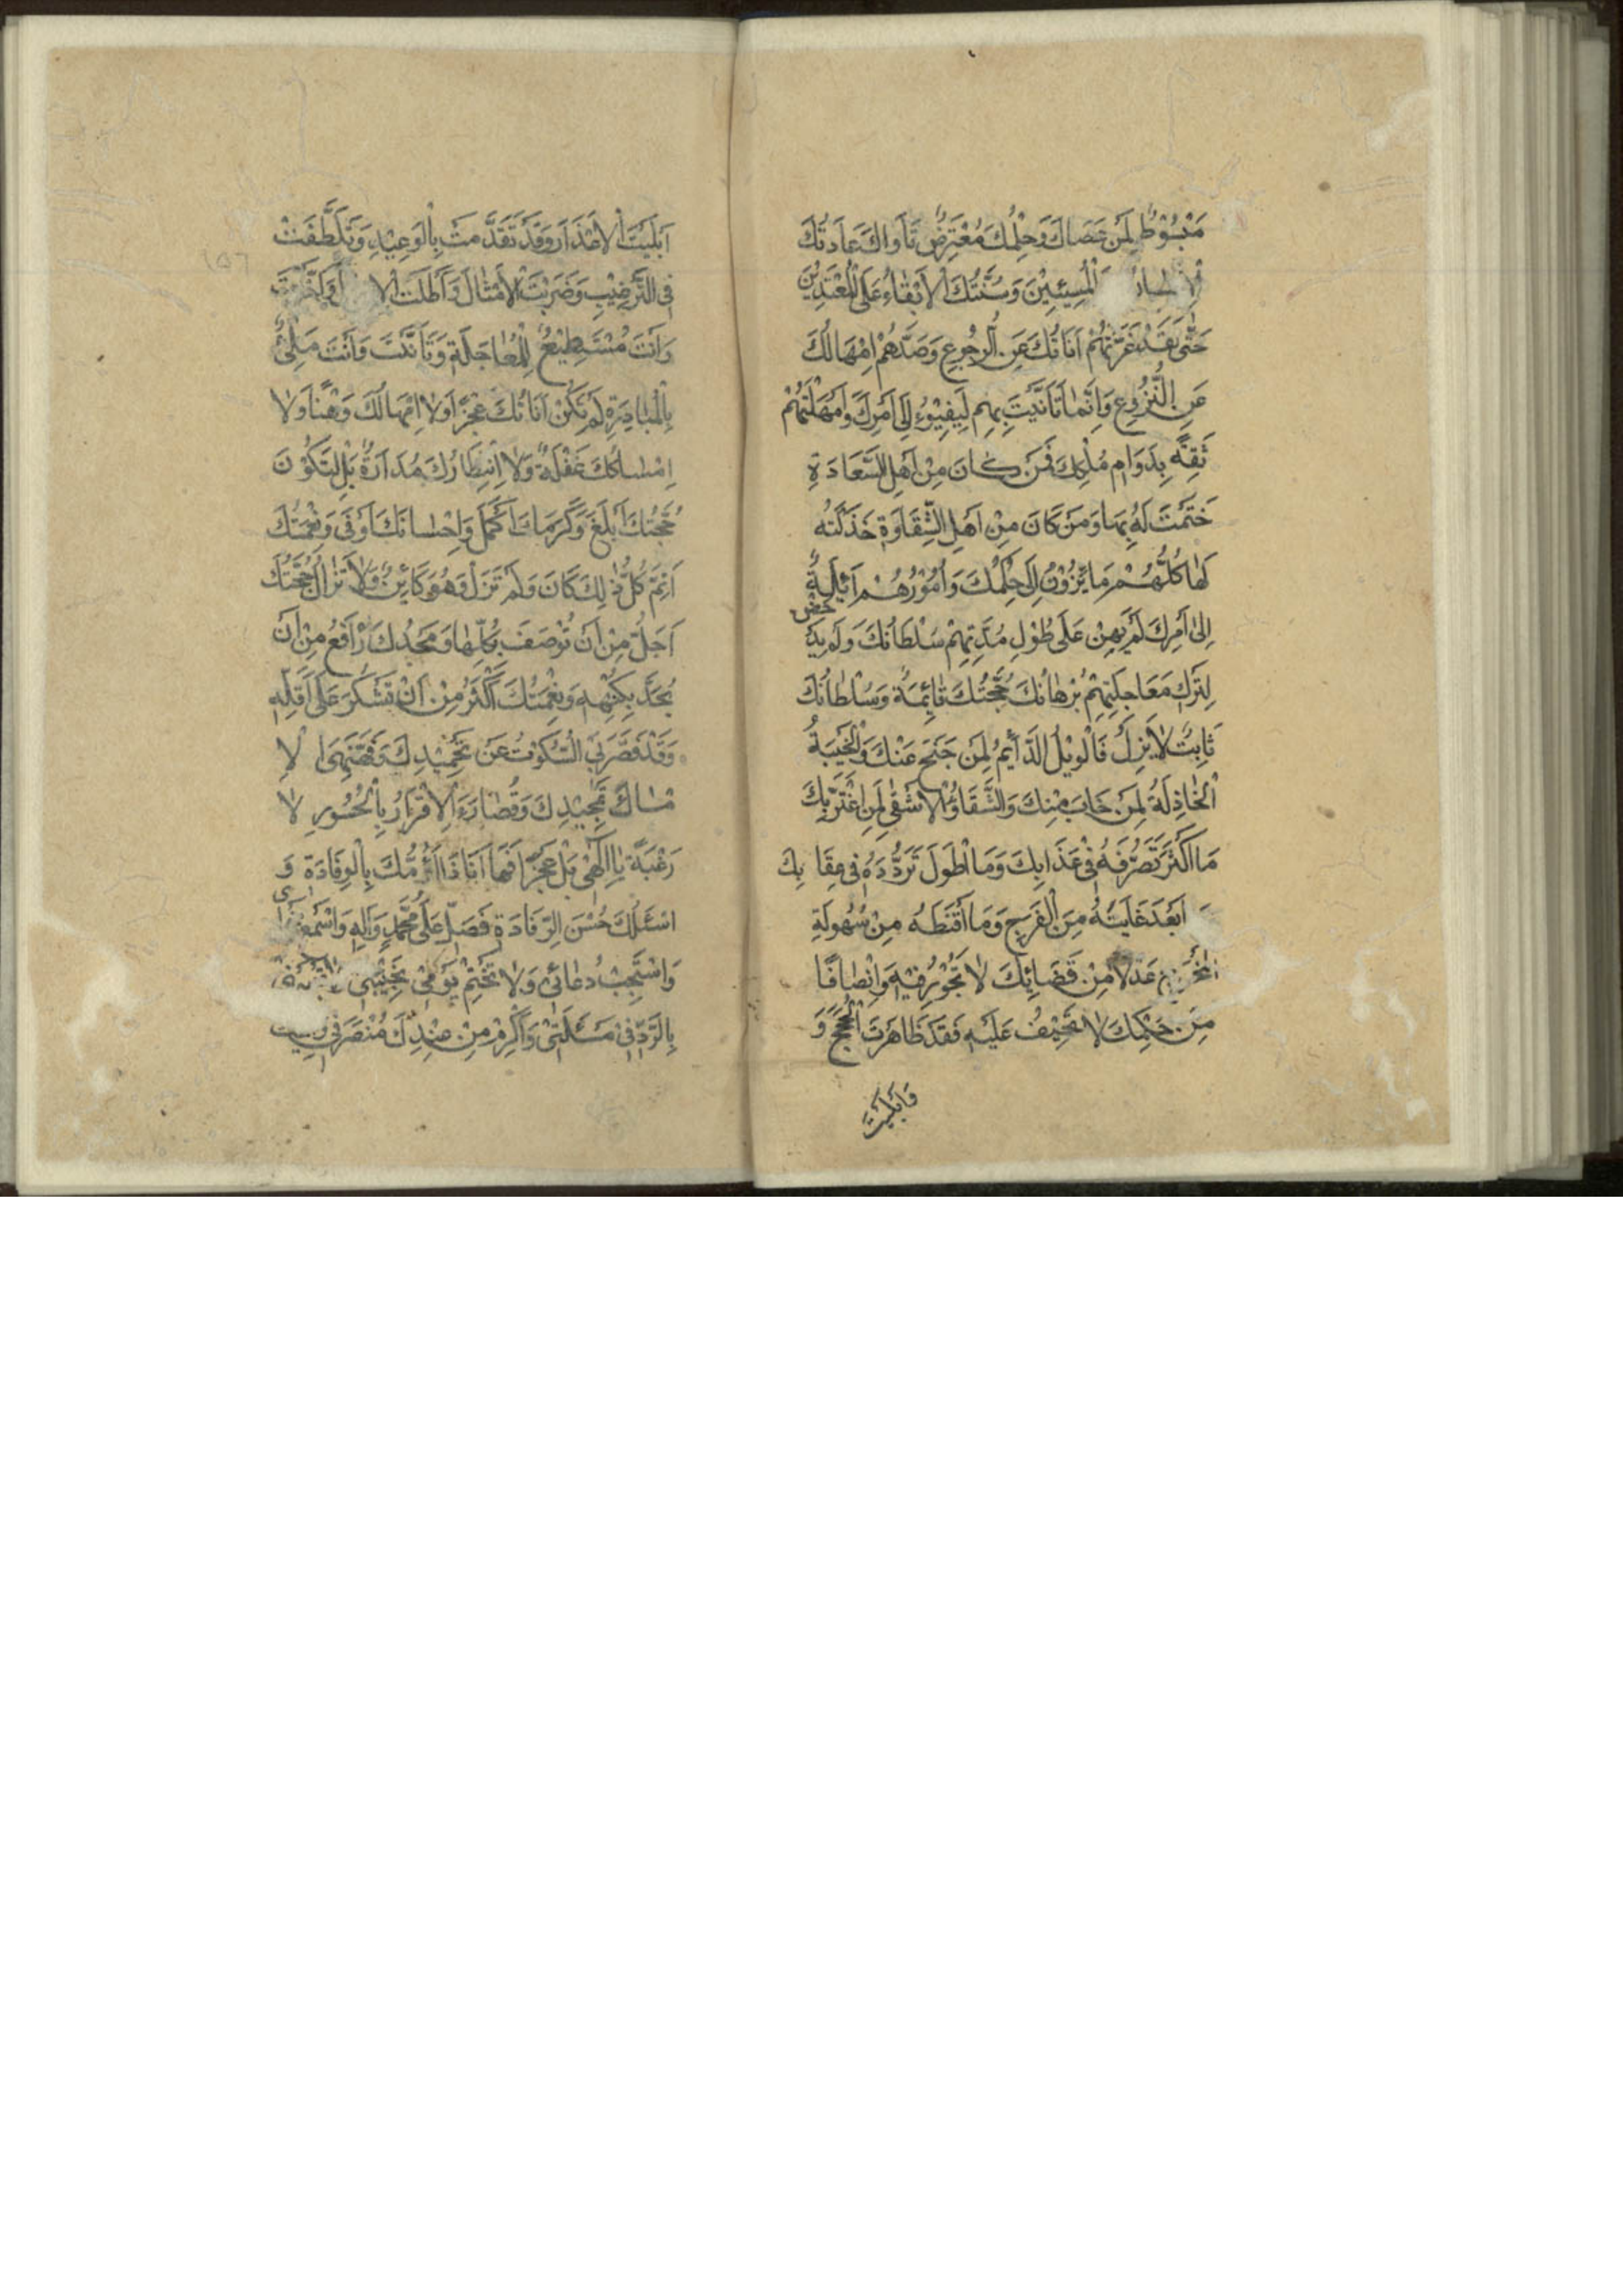 مَبْسُوْطٌ لِمَنْ عَصَاكَ وَحِلْمُكَ مُعْتَرِضٌ نَاوَاكَ عَادَتُكَ
الْمُسِيْئِيْنَ وَسُنَّتُكَ الْاِبْقَاءُ عَلَى الْمُعْتَدِيْنَ
حَتّٰى لَقَدْ غَرَّتْهُمْ اَنَاتُكَ عَنِ الرُّجُوعِ وَصَدَّهُمْ اِمْهَالُكَ
عَنِ النُّزُوعِ وَاِنَّمَا تَاَنَّيْتَ بِهِمْ لِيَفِيْؤُا اِلٰى اَمْرِكَ وَاَمْهَلْتَهُمْ
ثِقَةً بِدَوَامِ مُلْكِكَ فَمَنْ كَانَ مِنْ اَهْلِ السَّعَادَةِ
خَتَمْتَ لَهُ بِهَا وَمَنْ كَانَ مِنْ اَهْلِ الشَّقَاوَةِ خَذَلْتَهُ
لَهَا كُلُّهُمْ صَايِرُوْنَ اِلٰى حُكْمِكَ وَاُمُوْرُهُمْ اٰئِلَةٌ
اِلٰى اَمْرِكَ لَمْ يَهِنْ عَلٰى طُوْلِ مُدَّتِهِمْ سُلْطَانُكَ وَلَمْ يَدْحَضْ
لِتَرْكِ مُعَاجَلَتِهِمْ بُرْهَانُكَ حُجَّتُكَ قَائِمَةٌ وَسُلْطَانُكَ
ثَابِتٌ لَا يَزِلُ فَالْوَيْلُ الدَّائِمُ لِمَنْ جَنَحَ عَنْكَ وَالْخَيْبَةُ
الْخَاذِلَةُ لِمَنْ خَابَ مِنْكَ وَالشَّقَاءُ الْاَشْقٰى لِمَنِ اغْتَرَّ بِكَ
مَا اَكْثَرَ تَصَرُّفَهُ فِيْ عَذَابِكَ وَمَا اَطْوَلَ تَرَدُّدَهُ فِي عِقَابِكَ
اَبْعَدَ غَايَتَهُ مِنَ الْفَرَجِ وَمَا اَقْنَطَهُ مِنْ سُهُولَةِ
الْمَخْرَجِ عَدْلًا مِنْ قَضَائِكَ لَا تَجُوْرُ فِيْهِ وَاِنْصَافًا
مِنْ حُكْمِكَ لَا تَحِيْفُ عَلَيْهِ فَقَدْ ظَاهَرْتَ الْحُجَجَ وَ
وَاَبْلَيْتَ
اَبْلَيْتَ الْاَعْذَارَ وَقَدْ تَقَدَّمْتَ بِالْوَعِيْدِ وَتَلَطَّفْتَ
فِى التَّرْغِيْبِ وَضَرَبْتَ الْاَمْثَالَ وَاَطَلْتَ وَاَخَّرْتَ
وَاَنْتَ مُسْتَطِيْعٌ لِلْمُعَاجَلَةِ وَتَاَنَّيْتَ وَاَنْتَ مَلِيْءٌ
بِالْمُبَادَرَةِ لَمْ تَكُنْ اَنَاتُكَ عَجْزًا وَلَا اِمْهَالُكَ وَهْنًا وَلَا
اِمْسَاكُكَ غَفْلَةً وَلَا اِنْتِظَارُكَ مُدَارَةً بَلْ لِتَكُوْنَ
حُجَّتُكَ اَبْلَغَ وَكَرَمُكَ اَكْمَلَ وَاِحْسَانُكَ اَوْفٰى وَنِعْمَتُكَ
اَتَمَّ كُلُّ ذٰلِكَ كَانَ وَلَمْ تَزَلْ وَهُوَ كَائِنٌ وَلَا تَزَالُ حُجَّتُكَ
اَجَلُّ مِنْ اَنْ تُوْصَفَ بِكُلِّهَا وَمَجْدُكَ اَرْفَعُ مِنْ اَنْ
يُحَدَّ بِكُنْهِهِ وَنِعْمَتُكَ اَكْثَرُ مِنْ اَنْ تُشْكَرَ عَلٰى اَقَلِّهِ
وَقَدْ قَصَّرَ بِيَ السُّكُوْتُ عَنْ تَحْمِيْدِكَ وَفَهَّهَنِىَ الْاِ
مْسَاكُ تَمْجِيْدِكَ وَقُصَارَىَ الْاِقْرَارُ بِالْحُسُورِ لَا
رَغْبَةً يَا اِلٰهِيْ بَلْ عَجْزًا فَهَا اَنَا ذَا اَؤُمُّكَ بِالْوِفَادَةِ وَ
اَسْئَلُكَ حُسْنَ الرِّفَادَةِ فَصَلِّ عَلٰى مُحَمَّدٍ وَاٰلِهِ وَاسْمَعْ نَجْوَاىَ
وَاسْتَجِبْ دُعَائِيْ وَلَا تَخْتِمْ يَوْمِيْ بِخَيْبَتِيْ
بِالرَّدِّ فِيْ مَسْئَلَتِيْ وَاَكْرِمْ مِنْ عِنْدِكَ مُنْصَرَفِيْ